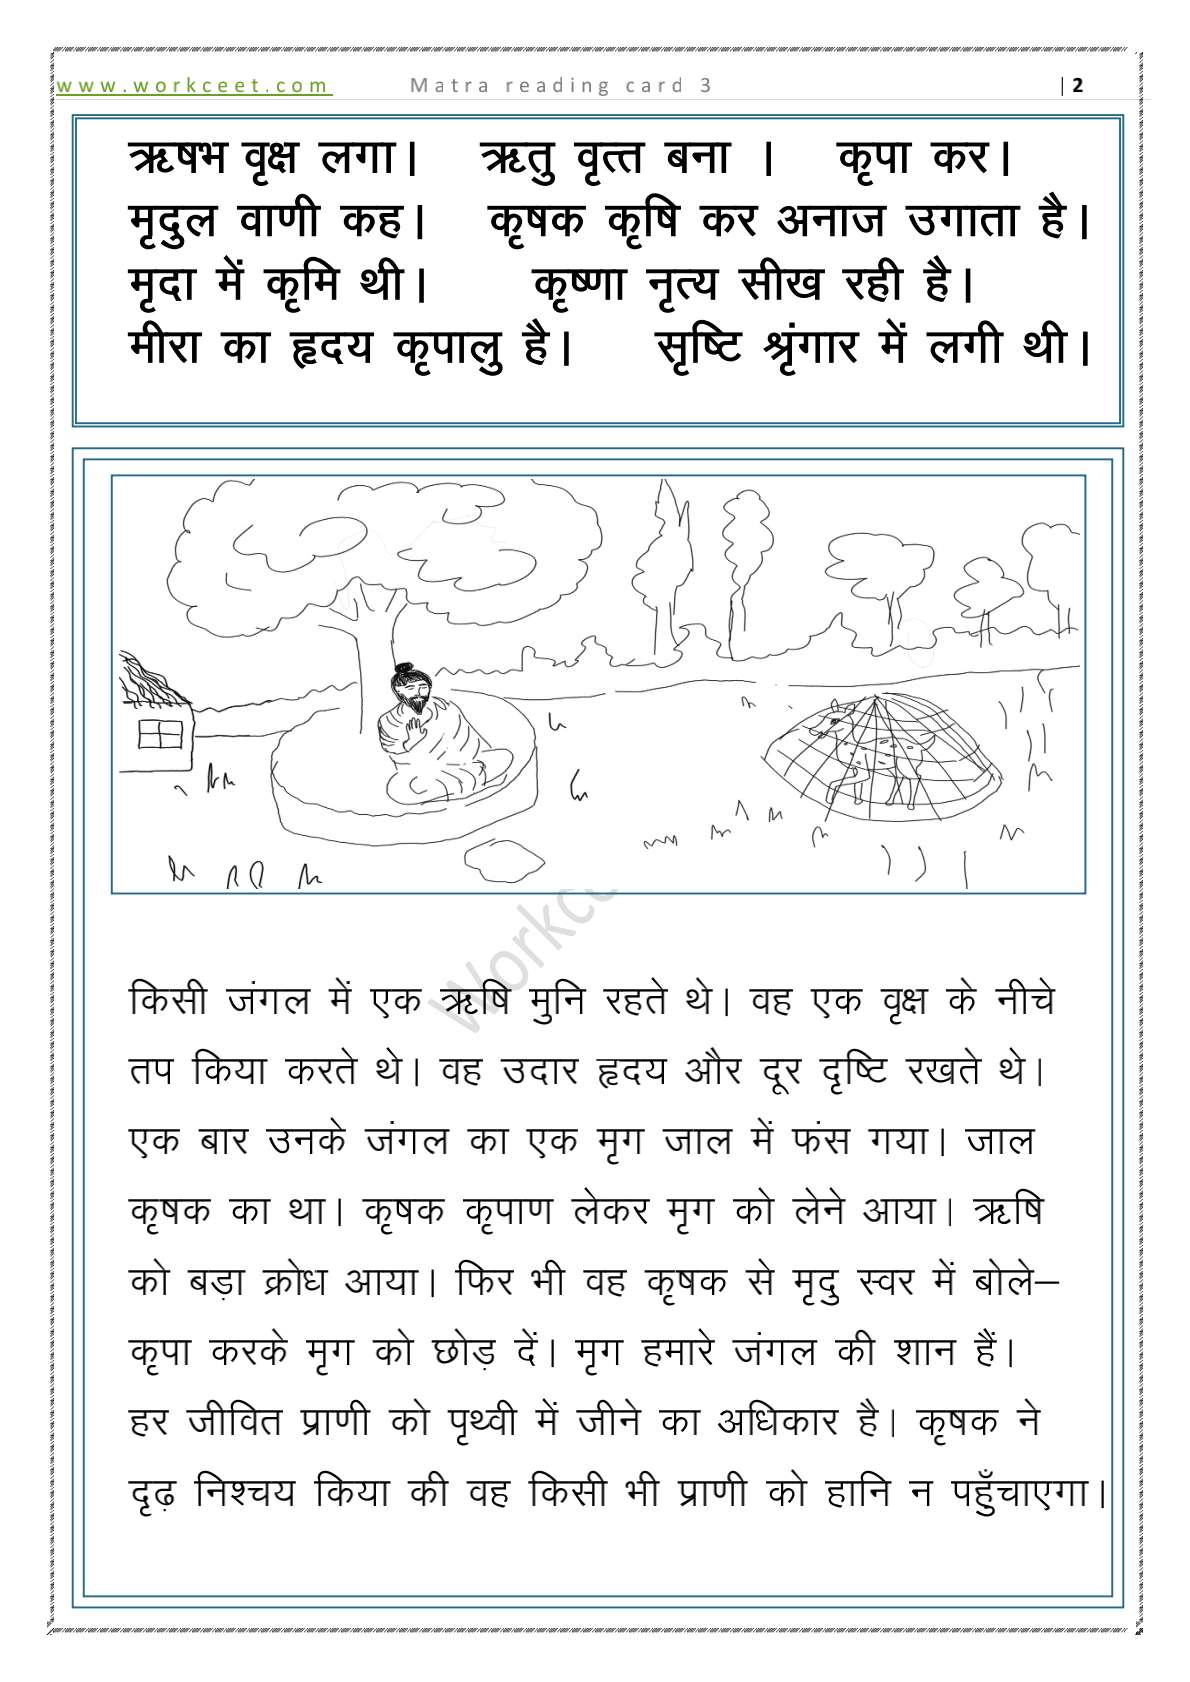 www.workceet.com Matra reading card 3 | 2
ऋषभ वृक्ष लगा। ऋतु वृत्त बना । कृपा कर।
मृदुल वाणी कह। कृषक कृषि कर अनाज उगाता है।
मृदा में कृमि थी। कृष्णा नृत्य सीख रही है।
मीरा का हृदय कृपालु है। सृष्टि श्रृंगार में लगी थी।
किसी जंगल में एक ऋषि मुनि रहते थे। वह एक वृक्ष के नीचे
तप किया करते थे। वह उदार हृदय और दूर दृष्टि रखते थे।
एक बार उनके जंगल का एक मृग जाल में फंस गया। जाल
कृषक का था। कृषक कृपाण लेकर मृग को लेने आया। ऋषि
को बड़ा क्रोध आया। फिर भी वह कृषक से मृदु स्वर में बोले–
कृपा करके मृग को छोड़ दें। मृग हमारे जंगल की शान हैं।
हर जीवित प्राणी को पृथ्वी में जीने का अधिकार है। कृषक ने
दृढ़ निश्चय किया की वह किसी भी प्राणी को हानि न पहुँचाएगा।